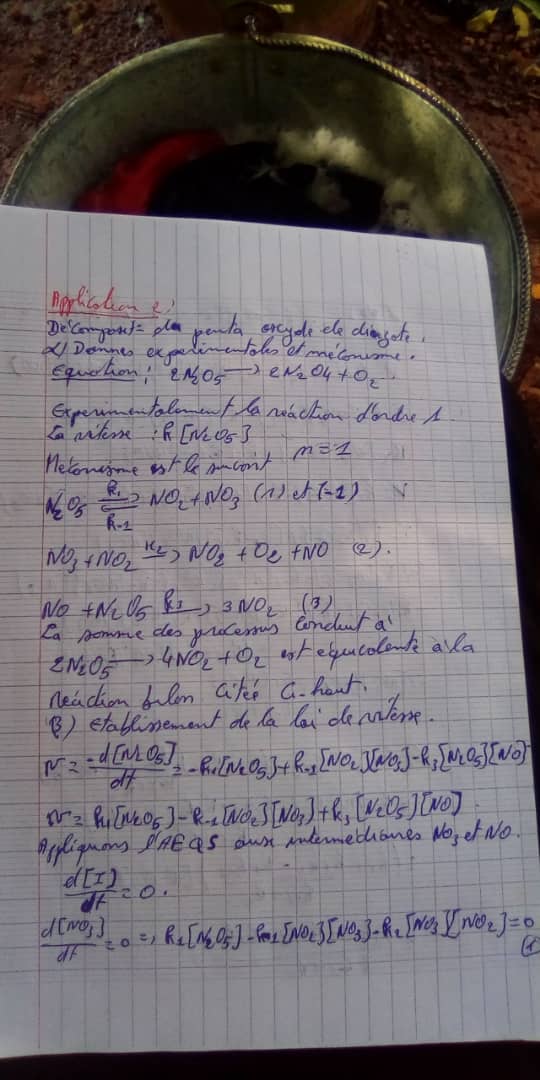 Application 2:
Décomposit= de penta oxyde de diazote.
α) Donnes experimentales et mécanisme.
Equation: 2N2O5 → 2N2O4 + O2.
Experimentalement la réaction d'ordre 1.
La vitesse : k[N2O5]
Mécanisme est le suivant n=1
N2O5 k1 ⇌ k-1 NO2 + NO3 (1) et (-1)
NO3 + NO2 k2 → NO2 + O2 + NO (2).
NO + N2O5 k3 → 3NO2 (3)
La somme des processus conduit à
2N2O5 → 4NO2 + O2 est equivalente à la
réaction bilan citée ci-haut.
β) Etablissement de la loi de vitesse.
v = -d[N2O5]/dt = -k1[N2O5] + k-1[NO2][NO3] - k3[N2O5][NO]
v = k1[N2O5] - k-1[NO2][NO3] + k3[N2O5][NO].
Appliquons l'AEQS aux intermédiaires NO3 et NO.
d[I]/dt = 0.
d[NO3]/dt = 0 => k1[N2O5] - k-1[NO2][NO3] - k2[NO3][NO2] = 0
(1)